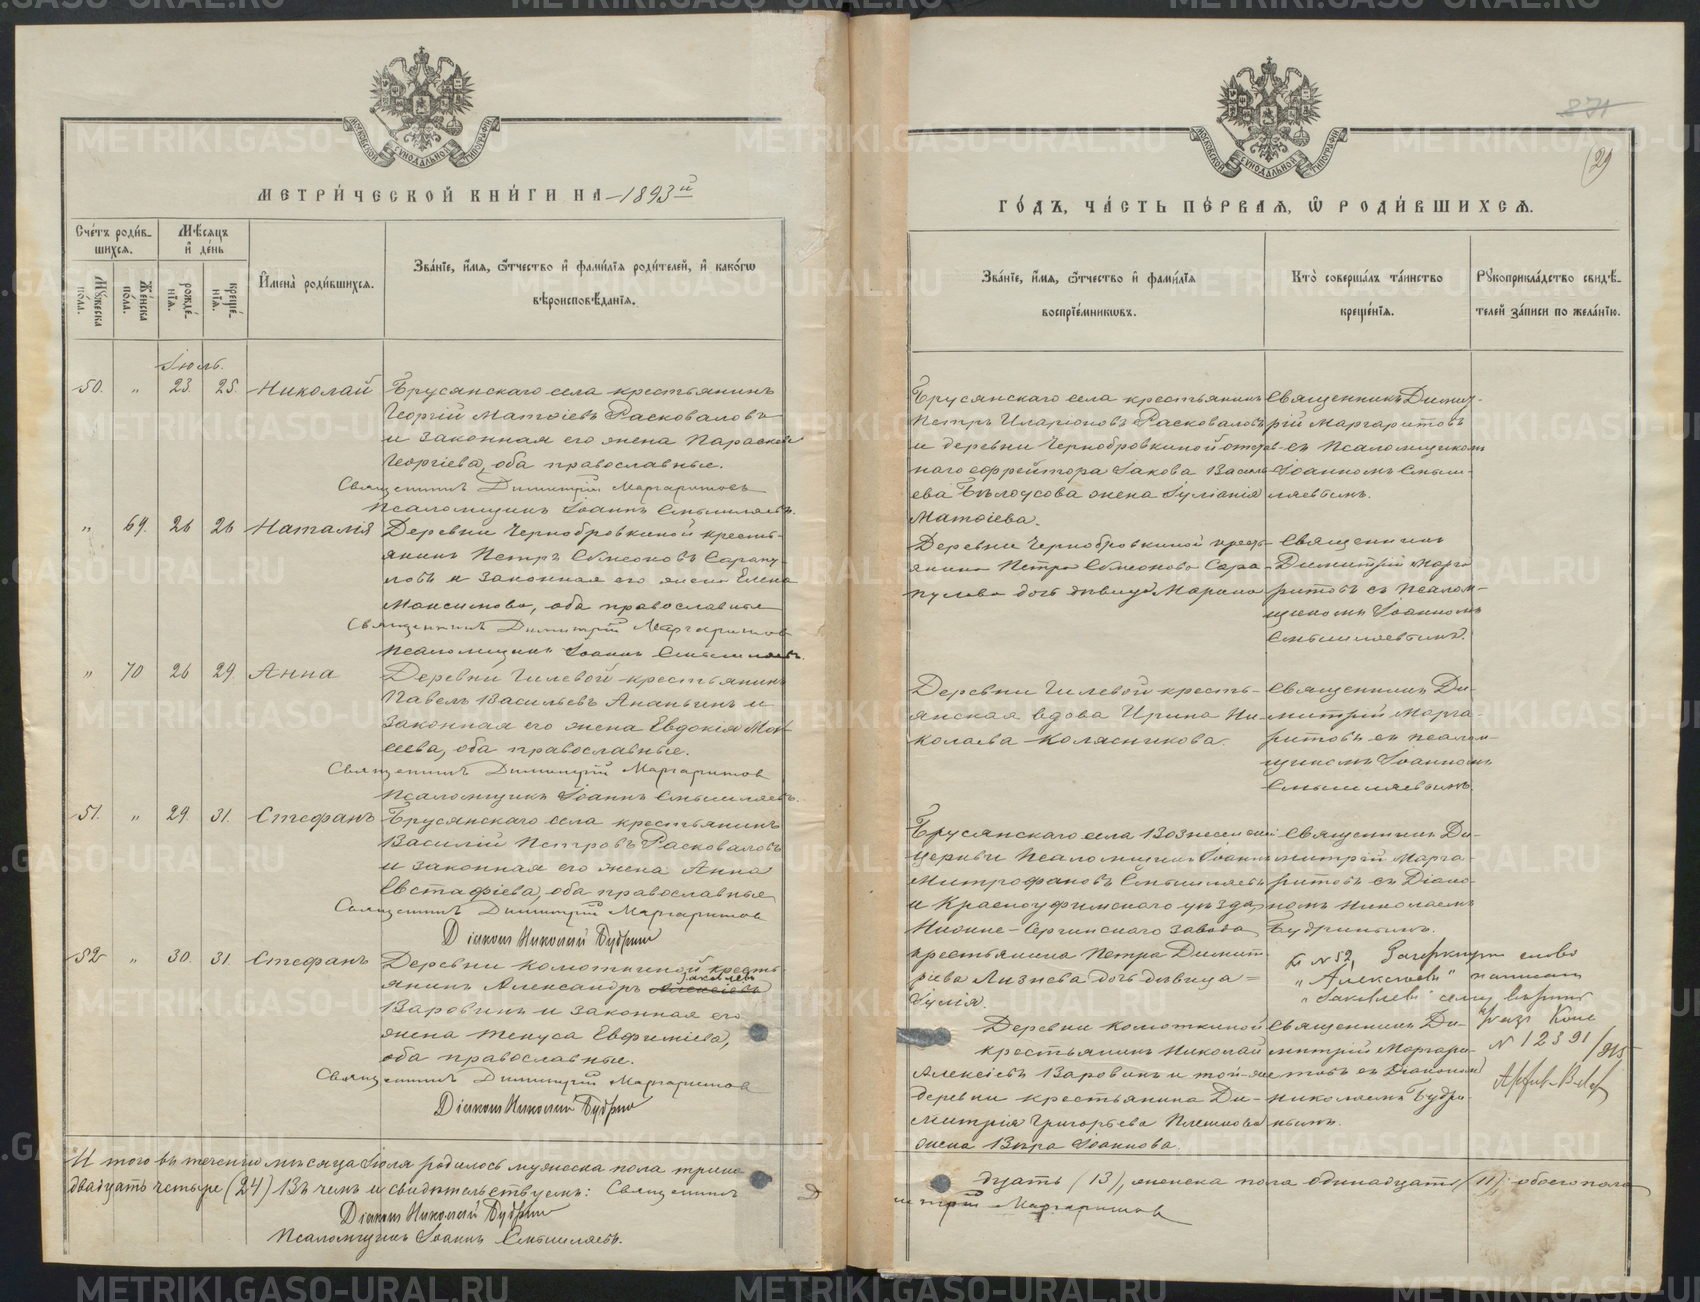 МЕТРИ́ЧЕСКОЙ КНИ́ГИ НА 1893й
Сче́тъ роди́в-
шихся.
Мѣсяцъ
и҆ де́нь
Мꙋ́жеска
по́ла.
Же́нска
по́ла.
рожде́-
нїѧ.
креще́-
нїѧ.
И҆мена̀ роди́вшихся.
Зва́нїе, и҆́мя, ѻ҆́тчество и҆ фами́лїя роди́телей, и҆ како́гѡ
вѣроисповѣ́данїя.
Іюль.
50. „ 23. 25. Николай
Брусянскаго села крестьянинъ
Георгій Матѳіевъ Расковаловъ
и законная его жена Параскева
Георгіева, оба православные.
Священникъ Димитрій Маргаритовъ
Псаломщикъ Іоаннъ Смышляевъ.
„ 69. 26 26 Наталія
Деревни Чернобровкиной кресть-
янинъ Петръ Сѵмеоновъ Сарапу-
ловъ и законная его жена Елена
Максимова, оба православные
Священникъ Димитрій Маргаритовъ
Псаломщикъ Іоаннъ Смышляевъ.
„ 70 26 29. Анна
Деревни Гилевой крестьянинъ
Павелъ Васильевъ Ананьинъ и
законная его жена Евдокія Мои-
сеева, оба православные.
Священникъ Димитрій Маргаритовъ
Псаломщикъ Іоаннъ Смышляевъ.
51. „ 29. 31. Стефанъ
Брусянскаго села крестьянинъ
Василій Петровъ Расковаловъ
и законная его жена Анна
Евстафіева, оба православные
Священникъ Димитрій Маргаритовъ
Діаконъ Николай Будринъ
52 „ 30. 31. Стефанъ
Деревни Комоткиной кресть-
Іаковлевъ
янинъ Александръ Алексіевъ
Варовинъ и законная его
жена Текуса Евфиміева,
оба православные.
Священникъ Димитрій Маргаритовъ
Діаконъ Николай Будринъ
И того въ теченіи мѣсяца Іюля родилось мужеска пола трина
двадцать четыре (24) Въ чемъ и свидѣтельствуемъ: Священникъ Д
Діаконъ Николай Будринъ
Псаломщикъ Іоаннъ Смышляевъ.
271
29
ГО́ДЪ, ЧА́СТЬ ПЕ́РВАЯ, Ѽ РОДИ́ВШИХСЯ.
Зва́нїе, и҆́мя, ѻ҆́тчество и҆ фами́лїя
воспрїе́мникѡвъ.
Кто̀ соверша́лъ та́инство
креще́нїя.
Рꙋкоприкла́дство свидѣ́-
телей за́писи по жела́нїю.
Брусянскаго села крестьянинъ
Петръ Иларіоновъ Расковаловъ
и деревни Чернобровкиной отстав-
наго ефрейтора Іакова Василь-
ева Бѣлоусова жена Іуліанія
Матѳіева.
Священникъ Димит-
рій Маргаритовъ
съ Псаломщикомъ
Іоанномъ Смыш-
ляевымъ.
Деревни Чернобровкиной кресть-
янина Петра Сѵмеонова Сара-
пулова дочь дѣвица Марина
Священникъ
Димитрій Марга-
ритовъ съ Псалом-
щикомъ Іоанномъ
Смышляевымъ.
Деревни Гилевой кресть-
янская вдова Ирина Ни-
колаева Колясникова.
Священникъ Ди-
митрій Марга-
ритовъ съ Псалом-
щикомъ Іоанномъ
Смышляевымъ.
Брусянскаго села Вознесенской
церкви Псаломщикъ Іоаннъ
Митрофановъ Смышляевъ
и Красноуфимскаго уѣзда,
Нижне-Сергинскаго завода
крестьянина Петра Димит-
ріева Лизнева дочь дѣвица
Іулія.
Священникъ Ди-
митрій Марга-
ритовъ съ Діако-
номъ Николаемъ
Будринымъ.
въ № 52, Зачеркнуто слово
„Алексіевъ“ написано
„Іаковлевъ“ сему вѣрить
Указ Конс
№ 12391/915
Деревни Комоткиной
крестьянинъ Николай
Алексіевъ Варовинъ и той-же
деревни крестьянина Ди-
митрія Григорьева Плешкова
жена Вѣра Іоаннова.
Священникъ Ди-
митрій Маргари-
товъ съ Діакономъ
Николаемъ Будри-
нымъ.
дцать (13), женска пола одинадцать (11), обоего пола
митрій Маргаритовъ